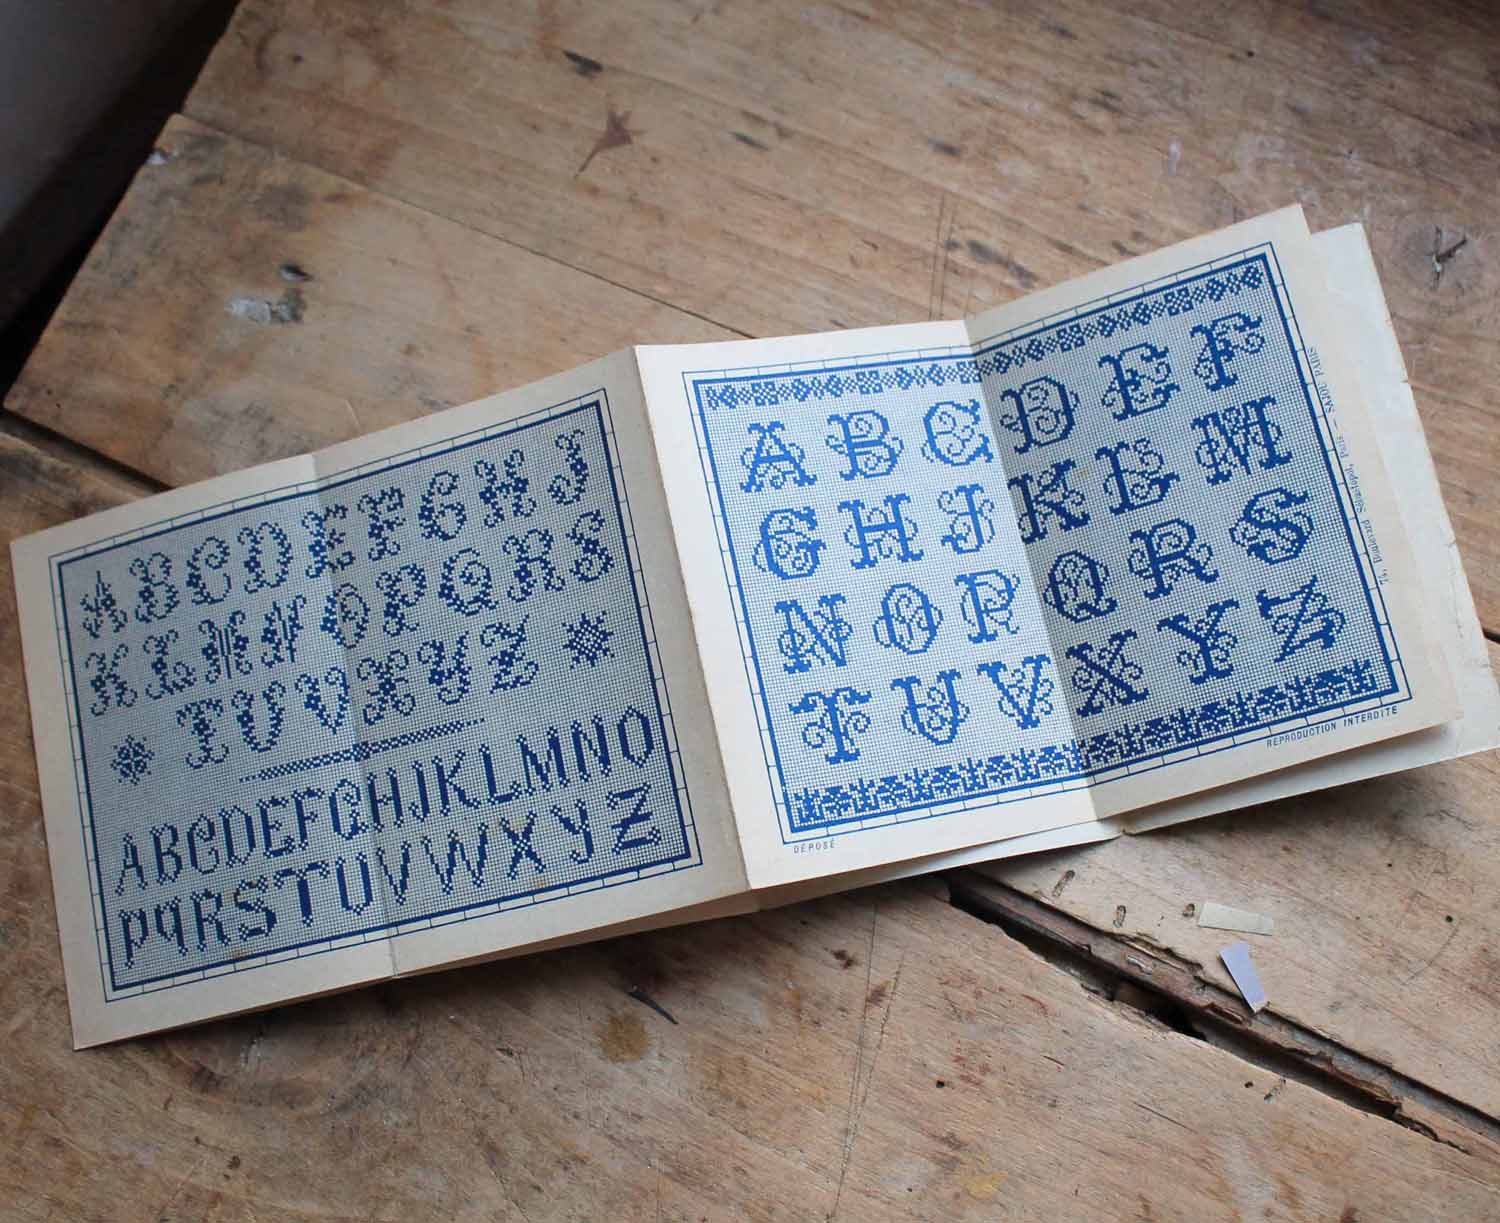 A B C D E F G H J
K L M N O P Q R S
T U V X Y Z
A B C D E F G H J K L M N O
P q R S T U V W X Y Z
A B C D E F
G H J K L M
N O P Q R S
T U V X Y Z
DÉPOSÉ
REPRODUCTION INTERDITE
Boulevard Sébastopol, Paris